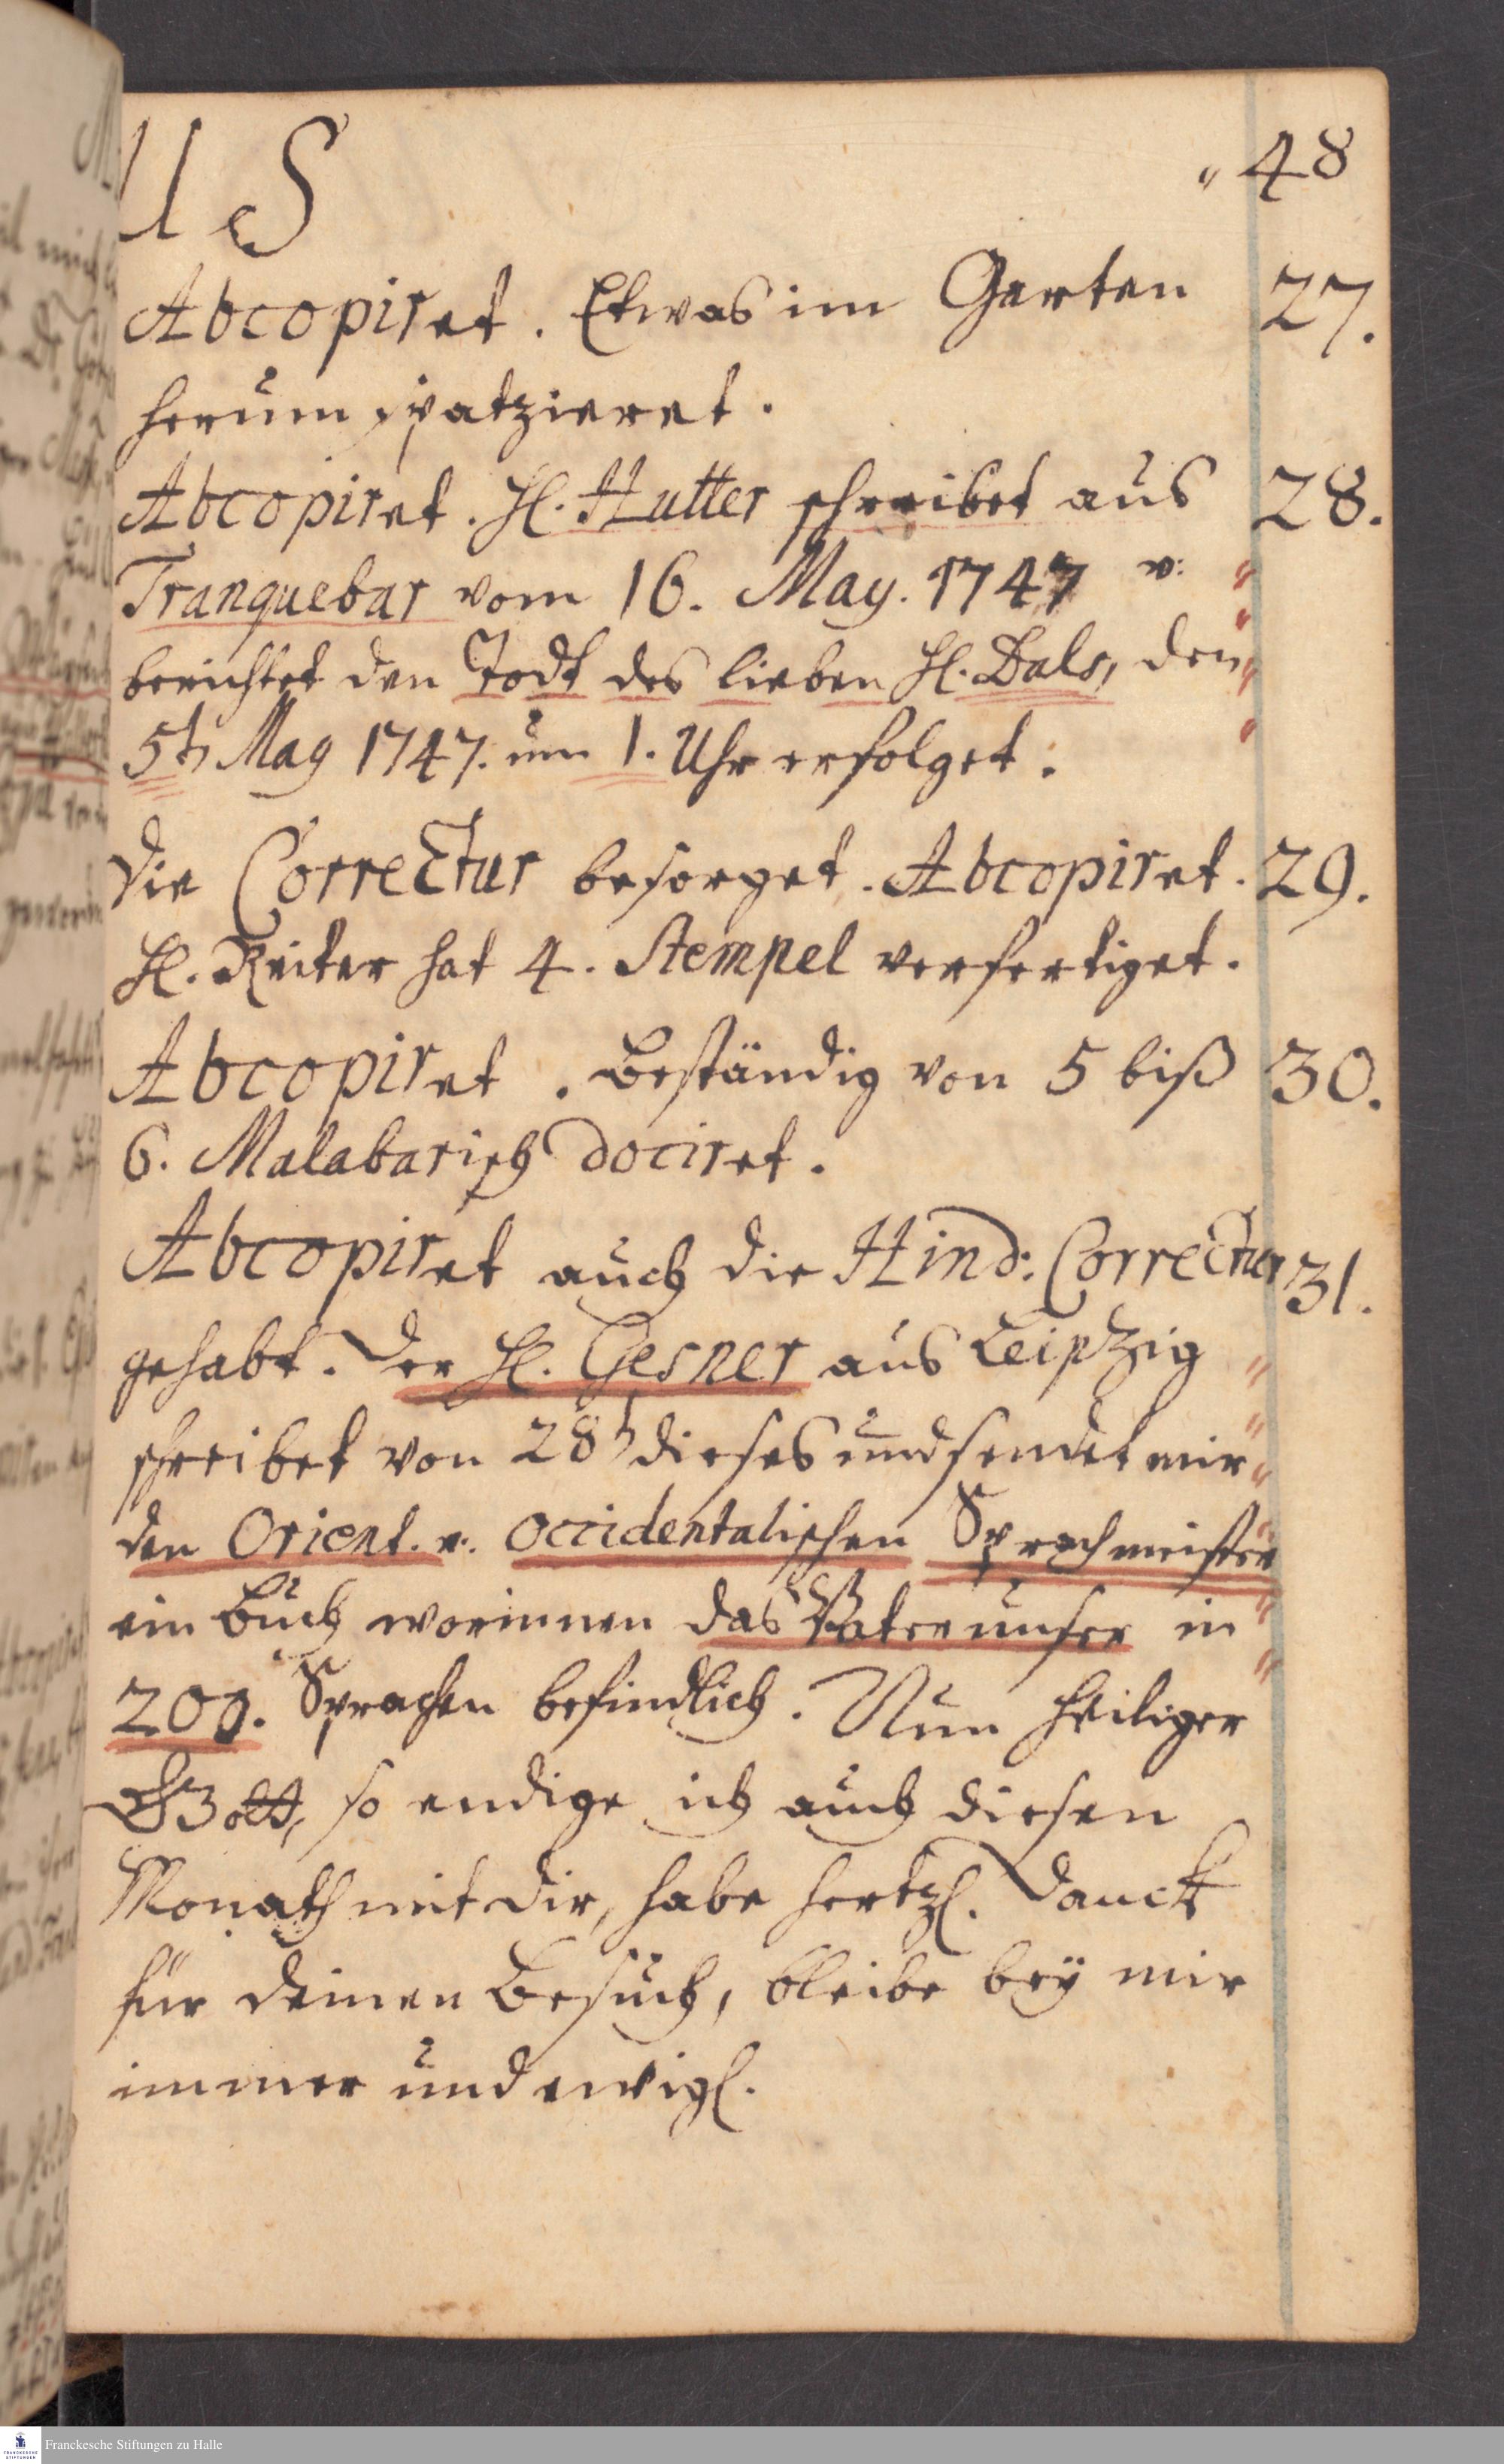 US "48
Abcopiret. Etwas im Garten 27.
herum spatzieret.
Abcopiret. H. Hutter schreibet aus 28.
Tranquebar vom 16. May. 1747 v:
berichtet den Todt des lieben H. Dals, den
5th May 1747. um 1. Uhr erfolget.
Die Correctur besorget. Abcopiret. 29.
H. Reiter hat 4. Stempel verfertiget.
Abcopiret. Beständig von 5 biß 30.
6. Malabarisch dociret.
Abcopiret auch die Hind: Correctur 31.
gehabt. Der H. Gesner aus Leipzig
schreibet von 28t dieses und sendet mir
den Orient. v. occidentalischen Sprachmeister
ein Buch worinnen das Vater unser in
200. Sprachen befindlich. Nun heiliger
Gott, so endige ich auch diesen
Monath mit dir, habe hertzl. Danck
für deinen Besuch, bleibe bey mir
immer und ewigl.
FRANCKESCHE STIFTUNGEN
Franckesche Stiftungen zu Halle